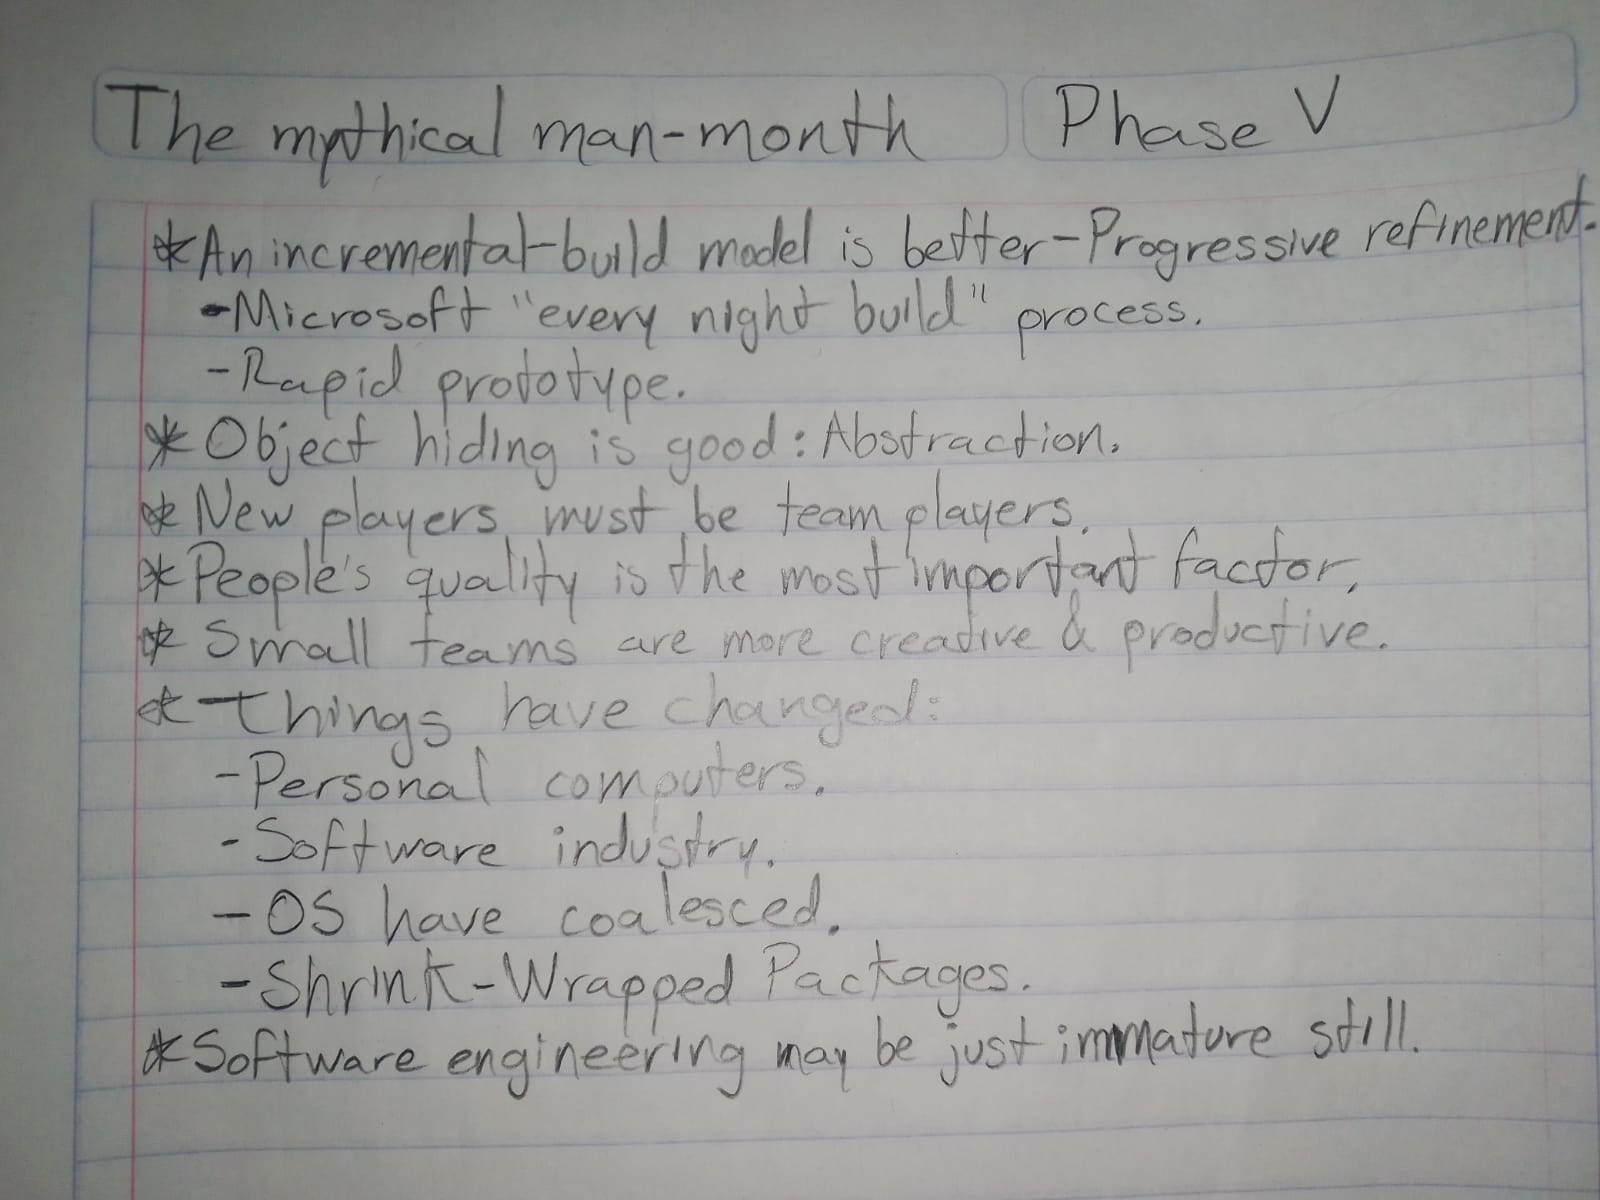 The mythical man-month Phase V
* An incremental-build model is better-Progressive refinement.
-Microsoft "every night build" process.
-Rapid prototype.
* Object hiding is good: Abstraction.
* New players must be team players.
* People's quality is the most important factor.
* Small teams are more creative & productive.
* Things have changed:
-Personal computers.
-Software industry.
-OS have coalesced.
-Shrink-Wrapped Packages.
* Software engineering may be just immature still.